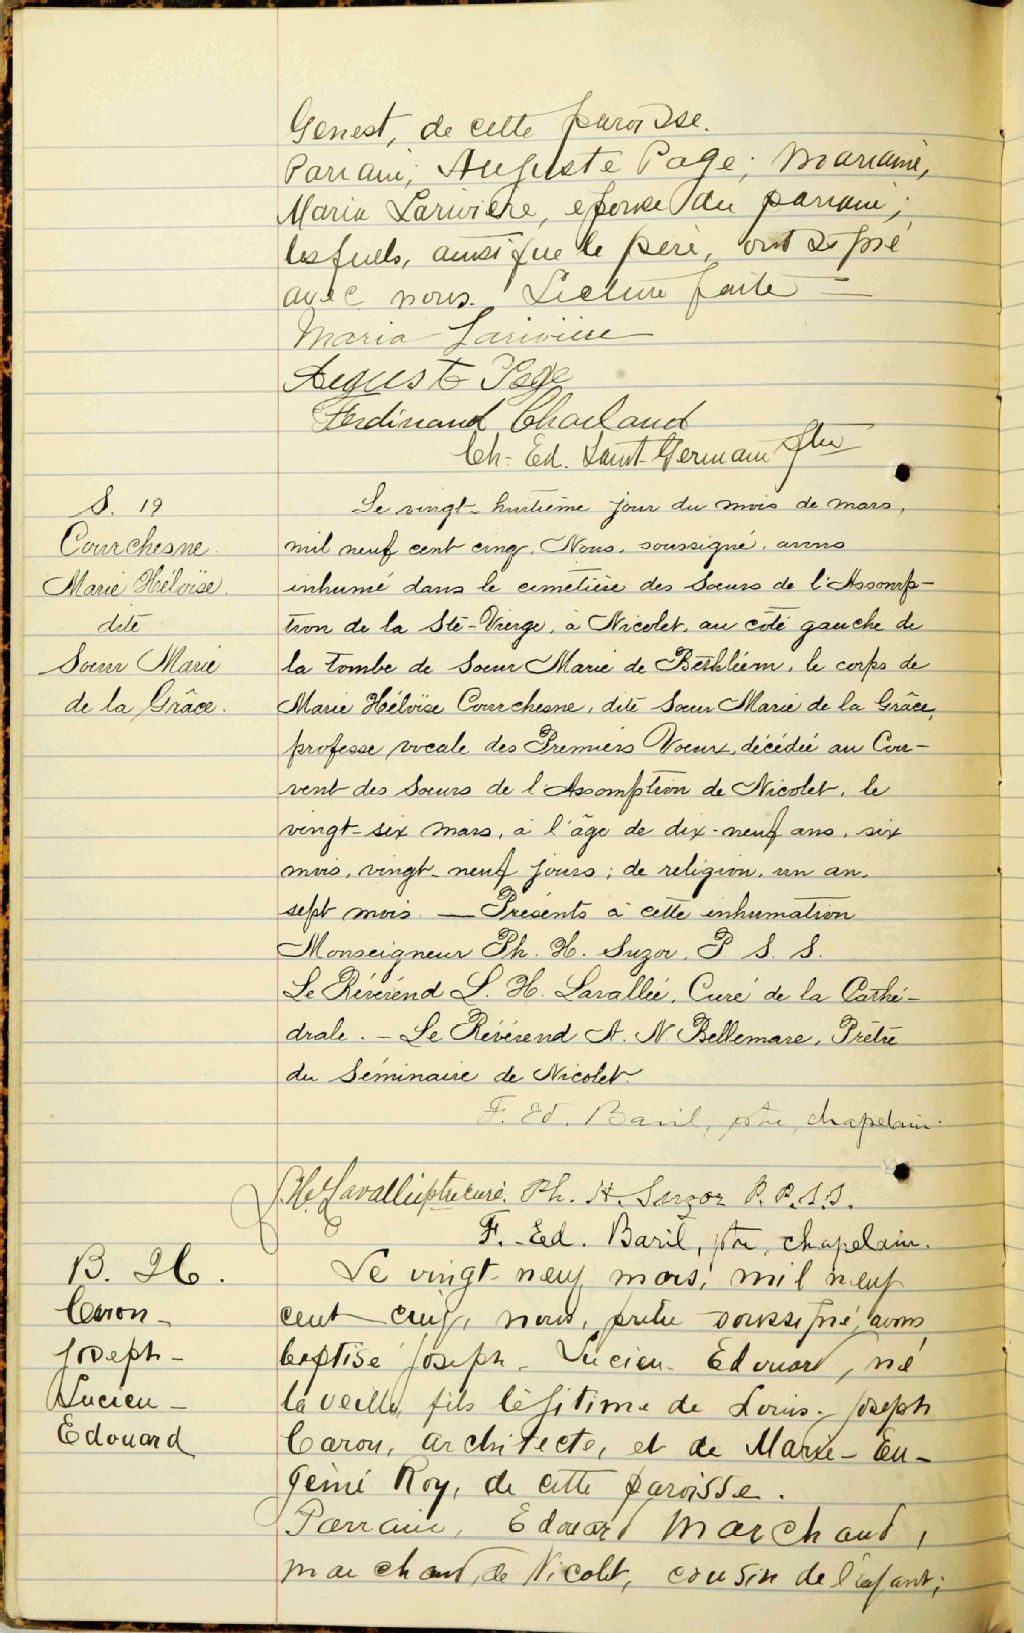 Genest, de cette paroisse.
Parrain, Auguste Page; Marraine,
Maria Larivière, épouse du parrain;
lesquels, ainsi que le père, ont signé
avec nous. Lecture faite —
Maria Lariviere
Auguste Page
Ferdinand Charland
Ch-Ed. Saint-Germain ptre
S. 19
Courchesne.
Marie Héloïse.
dite
Soeur Marie
de la Grâce.
Le vingt-huitième jour du mois de mars,
mil neuf cent cinq, Nous, soussigné, avons
inhumé dans le cimetière des Soeurs de l'Assomp-
tion de la Ste-Vierge, à Nicolet, au côté gauche de
la tombe de Soeur Marie de Bethléem, le corps de
Marie Héloïse Courchesne, dite Soeur Marie de la Grâce,
professe vocale des Premiers Voeux, décédée au Cou-
vent des Soeurs de l'Assomption de Nicolet, le
vingt-six mars, à l'âge de dix-neuf ans, six
mois, vingt-neuf jours; de religion, un an,
sept mois. — Présents à cette inhumation
Monseigneur Ph. H. Suzor, P S. S.
Le Révérend L. H. Lavallée, Curé de la Cathé-
drale. — Le Révérend A. N Bellemare, Prêtre
du Séminaire de Nicolet.
F. Ed. Baril, ptre, chapelain.
Lavallée ptre curé. Ph. H. Suzor P. P. S. S.
F. Ed. Baril, ptre, chapelain.
B. 26.
Caron -
Joseph -
Lucien -
Edouard
Le vingt-neuf mars, mil neuf
cent cinq, nous, prêtre soussigné, avons
baptisé Joseph-Lucien-Edouard, né
la veille, fils légitime de Louis-Joseph
Caron, architecte, et de Marie-Eu-
génie Roy, de cette paroisse.
Parrain, Edouard Marchand,
marchand, de Nicolet, cousin de l'enfant;